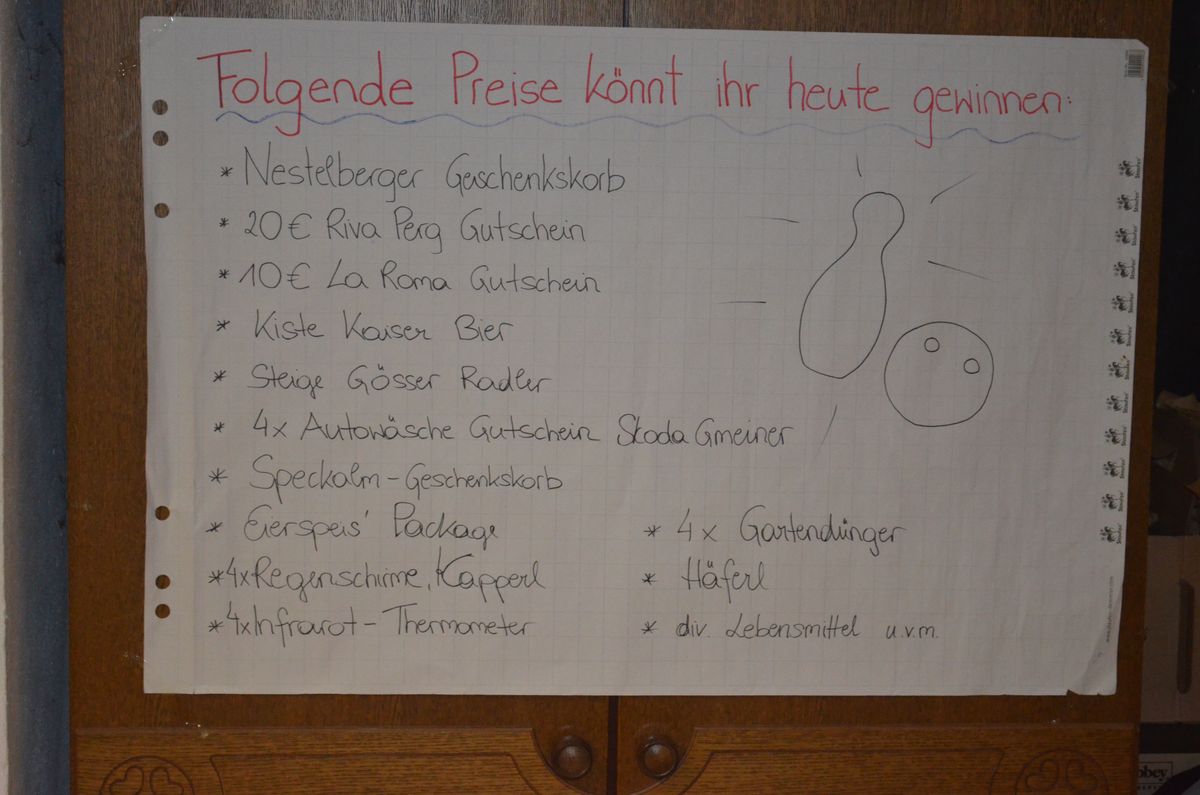 Folgende Preise könnt ihr heute gewinnen:
* Nestelberger Geschenkskorb
* 20€ Riva Perg Gutschein
* 10€ La Roma Gutschein
* Kiste Kaiser Bier
* Steige Gösser Radler
* 4x Autowäsche Gutschein Skoda Gmeiner
* Speckalm-Geschenkskorb
* Eierspeis' Package
* 4x Regenschirme, Kapperl
* 4x Infrarot-Thermometer
* 4x Gartendünger
* Häferl
* div. Lebensmittel u.v.m.